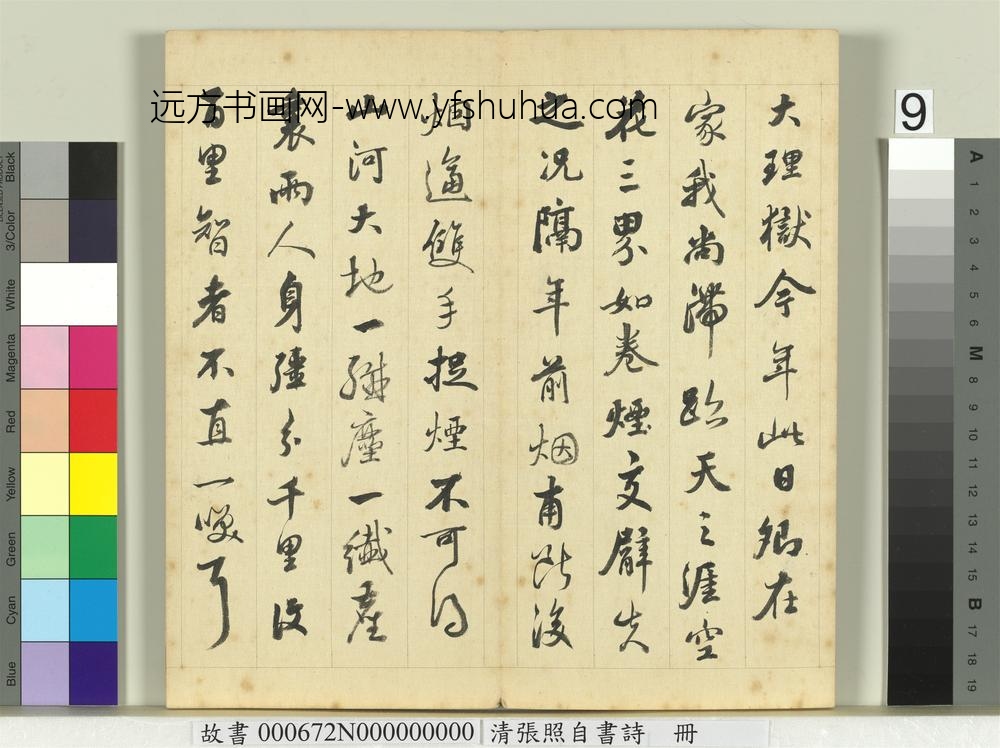 大理獄今年此日鄉在
家我尚滯跡天之涯空
花三界如卷煙交臂失
之况隔年前烟甫後
烟逼雙手捉煙不可得
河大地一纖塵一纖塵
裏兩人身疆分千里
百里智者不直一咲耳
远方书画网-www.yfshuhua.com
9
故書 000672N000000000 清張照自書詩 冊
Black
3/Color
White
Magenta
Red
Yellow
Green
Cyan
Blue
A
1
2
3
4
5
6
M
8
9
10
11
12
13
14
15
B
17
18
19